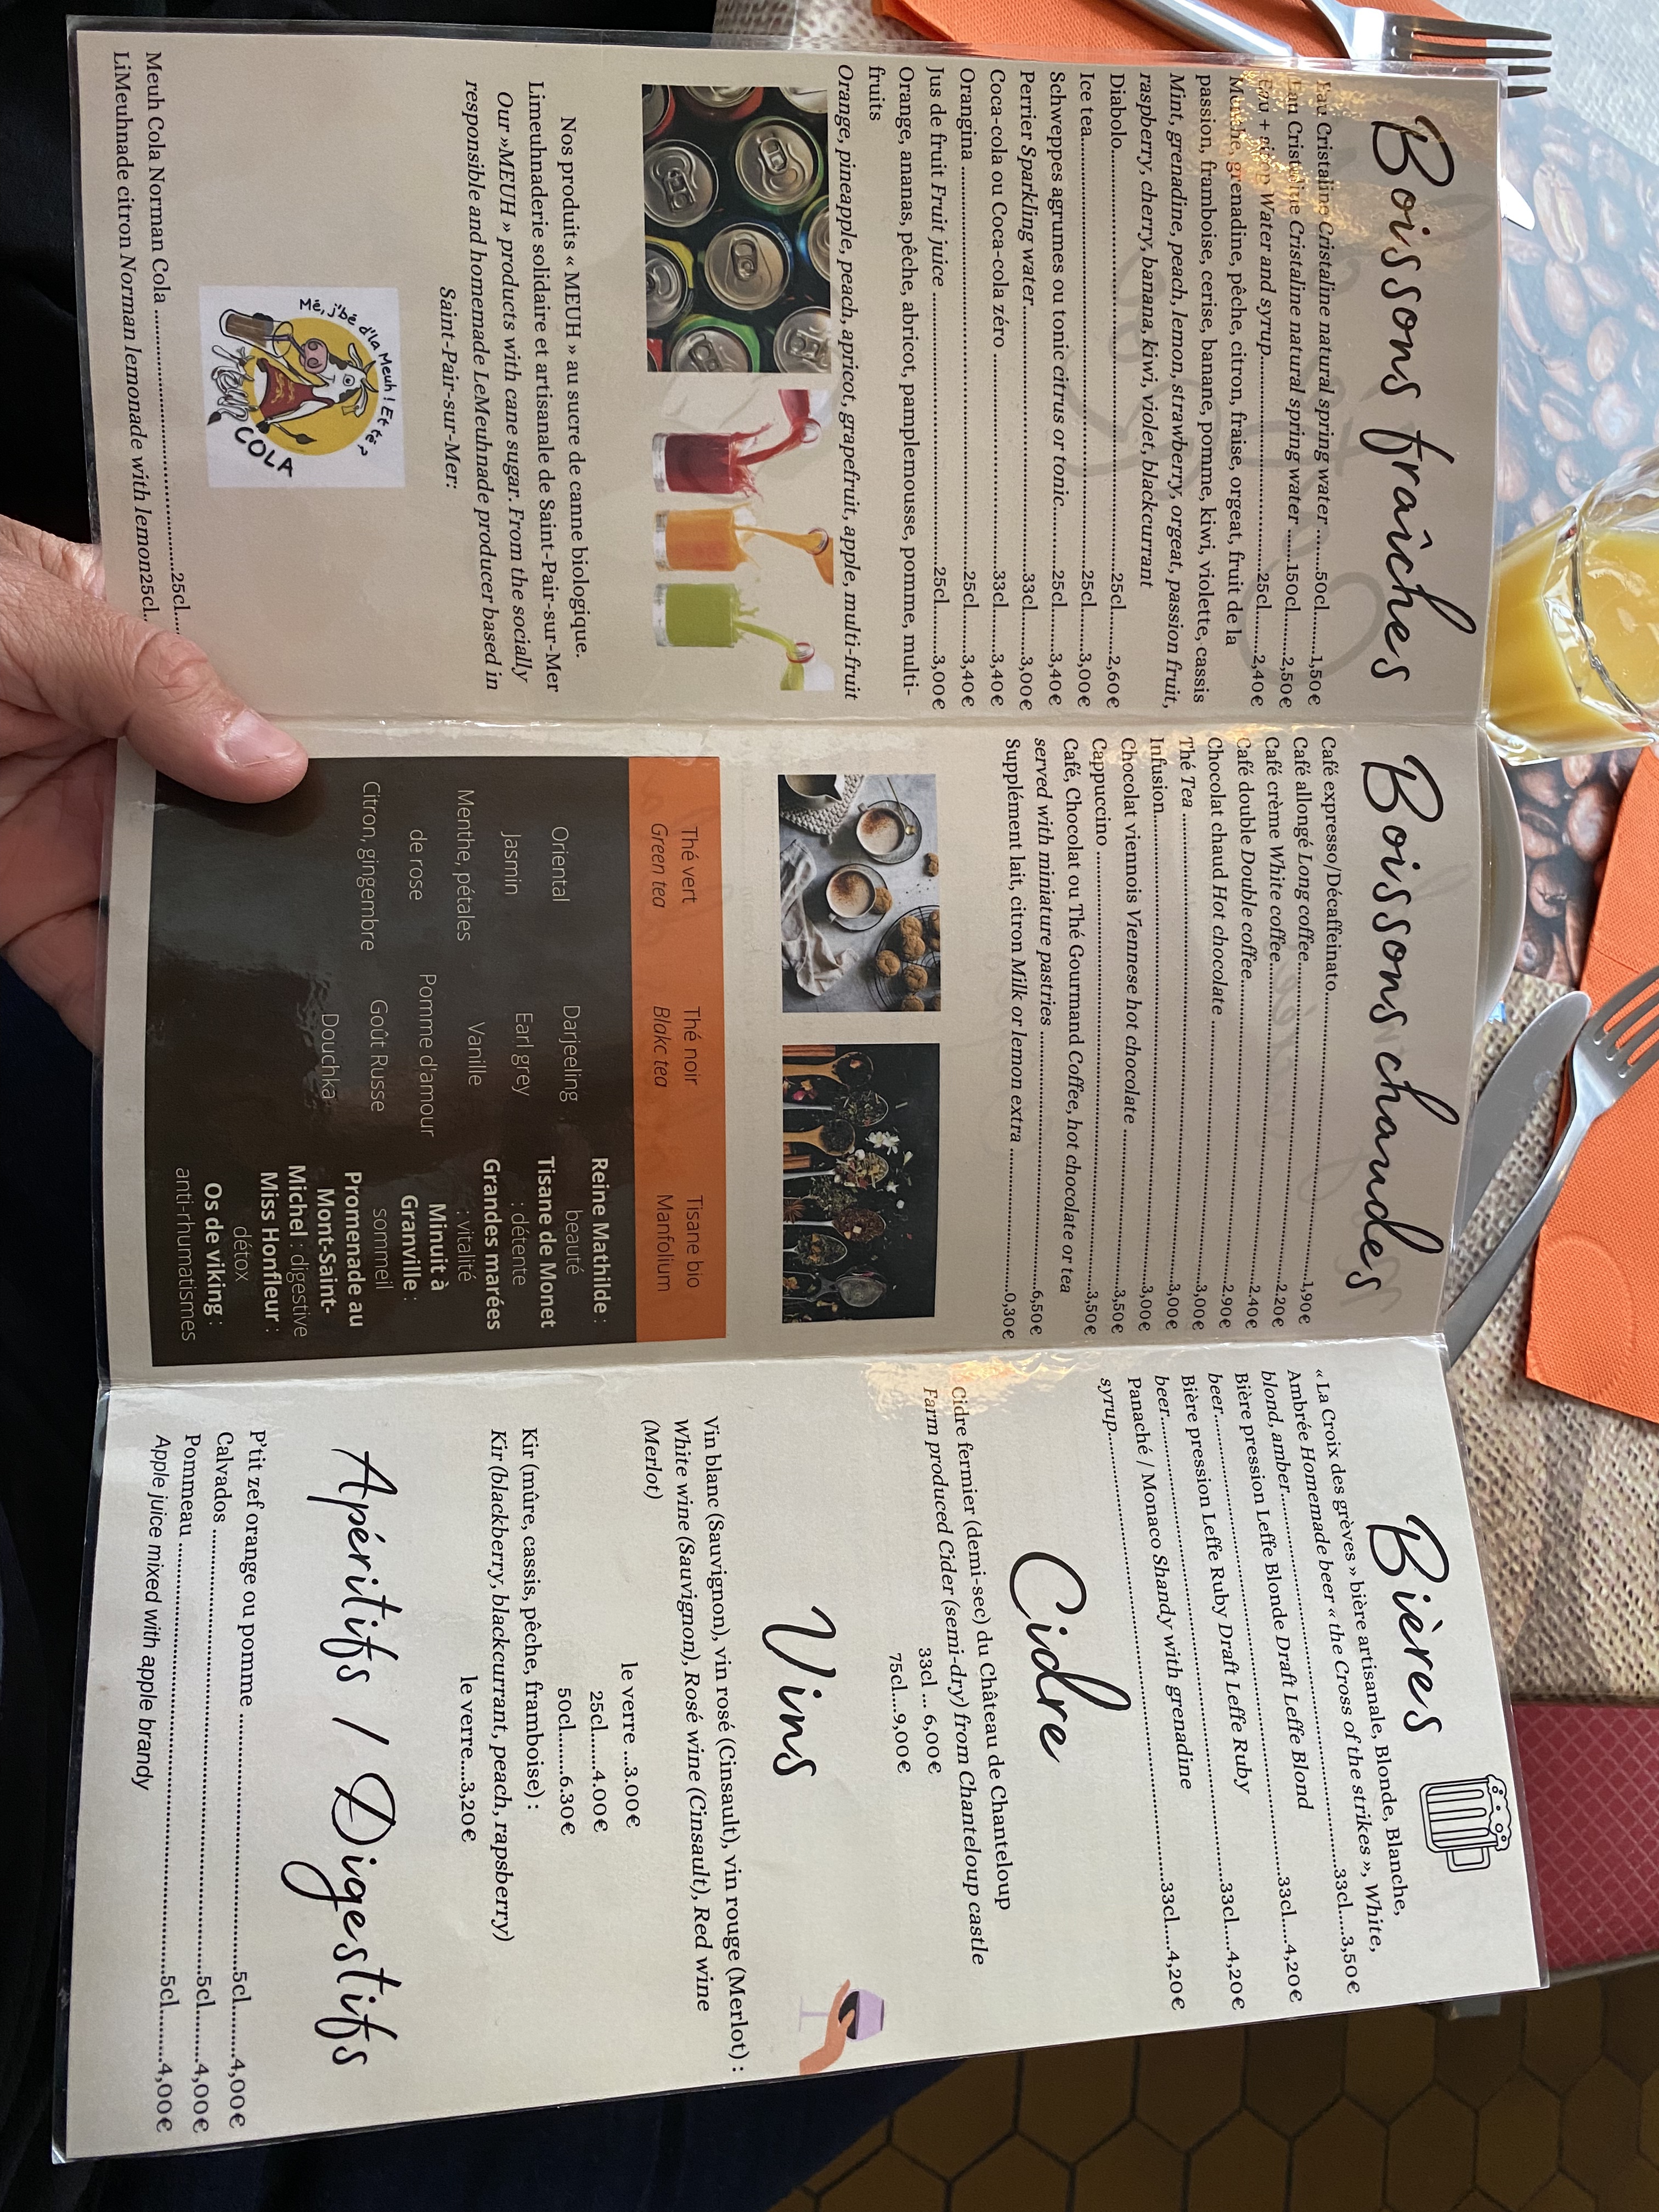 Boissons fraîches
Eau Cristaline Cristaline natural spring water ......50cl.......1,50€
Eau Cristaline Cristaline natural spring water ...150cl.......2,50€
Eau + sirop Water and syrup....................25cl.......2,40€
Menthe, grenadine, pêche, citron, fraise, orgeat, fruit de la
passion, framboise, cerise, banane, pomme, kiwi, violette, cassis
Mint, grenadine, peach, lemon, strawberry, orgeat, passion fruit,
raspberry, cherry, banana, kiwi, violet, blackcurrant
Diabolo....................25cl.......2,60€
Ice tea....................25cl.......3,00€
Schweppes agrumes ou tonic citrus or tonic..........25cl.......3,40€
Perrier Sparkling water....................33cl.......3,00€
Coca-cola ou Coca-cola zéro ....................33cl.......3,40€
Orangina ....................25cl.......3,40€
Jus de fruit Fruit juice ....................25cl.......3,00€
Orange, ananas, pêche, abricot, pamplemousse, pomme, multi-
fruits
Orange, pineapple, peach, apricot, grapefruit, apple, multi-fruit
Nos produits « MEUH » au sucre de canne biologique.
Limeuhnaderie solidaire et artisanale de Saint-Pair-sur-Mer
Our »MEUH » products with cane sugar. From the socially
responsible and homemade LeMeuhnade producer based in
Saint-Pair-sur-Mer:
Mé, j'bé d'la Meuh ! Et té ?
COLA
Meuh Cola Norman Cola ....................25cl....
LiMeuhnade citron Norman lemonade with lemon25cl..
Boissons chaudes
Café expresso/Décaffeinato....................1,90€
Café allongé Long coffee....................2.20€
Café crème White coffee....................2.40€
Café double Double coffee....................2.90€
Chocolat chaud Hot chocolate ....................3,00€
Thé Tea ....................3,00€
Infusion....................3,00€
Chocolat viennois Viennese hot chocolate ....................3,50€
Cappuccino ....................3,50€
Café, Chocolat ou Thé Gourmand Coffee, hot chocolate or tea
served with miniature pastries ....................6,50€
Supplément lait, citron Milk or lemon extra ....................0,30€
Thé vert
Green tea
Oriental
Jasmin
Menthe, pétales
de rose
Citron, gingembre
Thé noir
Blakc tea
Darjeeling
Earl grey
Vanille
Pomme d'amour
Goût Russe
Douchka
Tisane bio
Manfolium
Reine Mathilde :
beauté
Tisane de Monet
: détente
Grandes marées
: vitalité
Minuit à
Granville :
sommeil
Promenade au
Mont-Saint-
Michel : digestive
Miss Honfleur :
détox
Os de viking :
anti-rhumatismes
Bières
« La Croix des grèves » bière artisanale, Blonde, Blanche,
Ambrée Homemade beer « the Cross of the strikes », White,
blond, amber....................33cl....3,50€
Bière pression Leffe Blonde Draft Leffe Blond
beer....................33cl....4,20€
Bière pression Leffe Ruby Draft Leffe Ruby
beer....................33cl....4,20€
Panaché / Monaco Shandy with grenadine
syrup....................33cl....4,20€
Cidre
Cidre fermier (demi-sec) du Château de Chanteloup
Farm produced Cider (semi-dry) from Chanteloup castle
33cl ... 6,00€
75cl...9,00€
Vins
Vin blanc (Sauvignon), vin rosé (Cinsault), vin rouge (Merlot) :
White wine (Sauvignon), Rosé wine (Cinsault), Red wine
(Merlot)
le verre ...3.00€
25cl.....4.00€
50cl......6.30€
Kir (mûre, cassis, pêche, framboise) :
Kir (blackberry, blackcurrant, peach, rapsberry)
le verre...3,20€
Apéritifs / Digestifs
P'tit zef orange ou pomme ....................5cl......4,00€
Calvados ....................5cl......4,00€
Pommeau ....................5cl......4,00€
Apple juice mixed with apple brandy